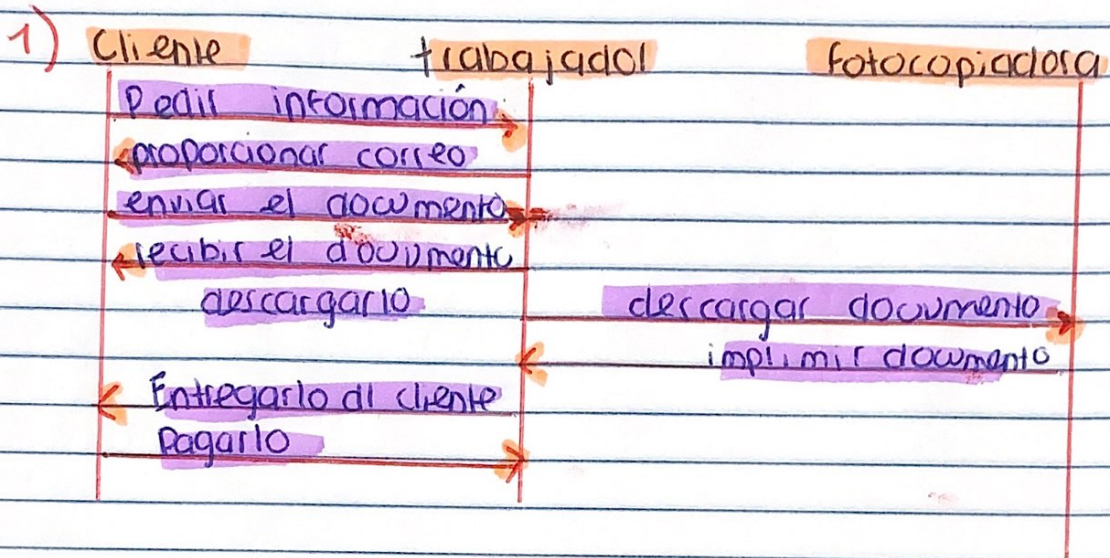 1) Cliente trabajador fotocopiadora
Pedir información
proporcionar correo
enviar el documento
recibir el documento
descargarlo descargar documento
imprimir documento
Entregarlo al cliente
Pagarlo